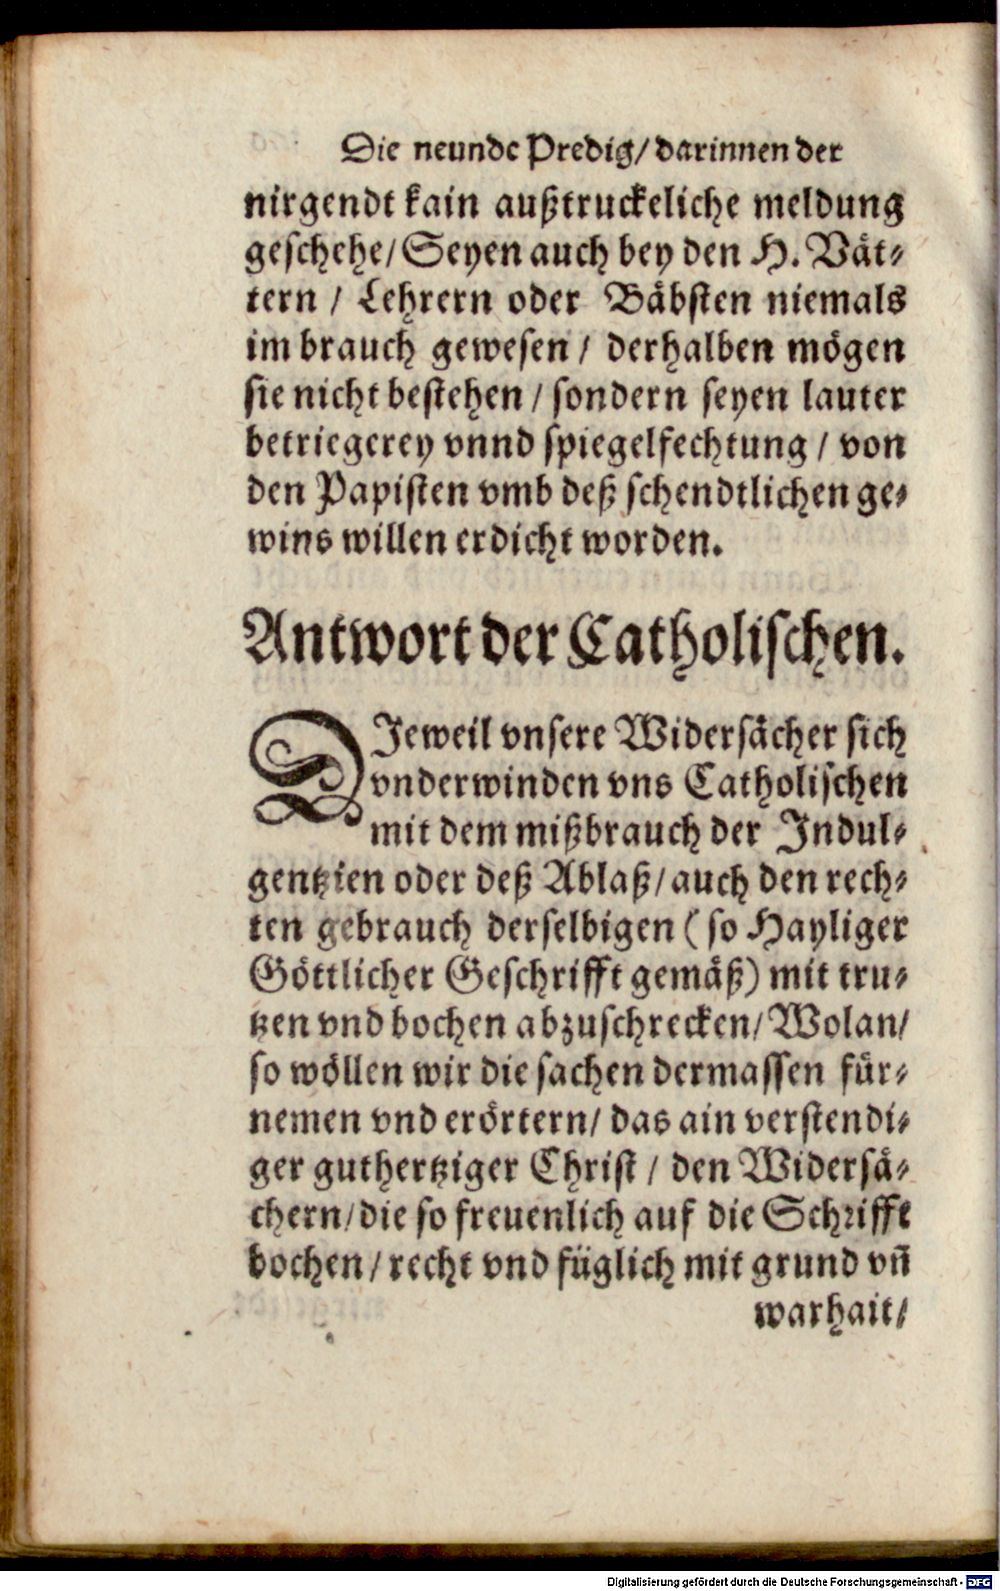 Die neunde Predig/ darinnen der
nirgendt kain außtruckeliche meldung
geschehe/ Seyen auch bey den H. Våt⸗
tern / Lehrern oder Båbsten niemals
im brauch gewesen / derhalben mögen
sie nicht bestehen / sondern seyen lauter
betriegerey vnnd spiegelfechtung / von
den Papisten vmb deß schendtlichen ge⸗
wins willen erdicht worden.
Antwort der Catholischen.
DJeweil vnsere Widersåcher sich
vnderwinden vns Catholischen
mit dem mißbrauch der Jndul⸗
gentzien oder deß Ablaß/ auch den rech⸗
ten gebrauch derselbigen ( so Hayliger
Göttlicher Geschrifft gemåß) mit tru⸗
tzen vnd bochen abzuschrecken/ Wolan/
so wöllen wir die sachen dermassen für⸗
nemen vnd erörtern/ das ain verstendi⸗
ger guthertziger Christ / den Widerså⸗
chern/ die so freuenlich auf die Schrifft
bochen / recht vnd füglich mit grund vñ
warhait/
Digitalisierung gefördert durch die Deutsche Forschungsgemeinschaft - DFG